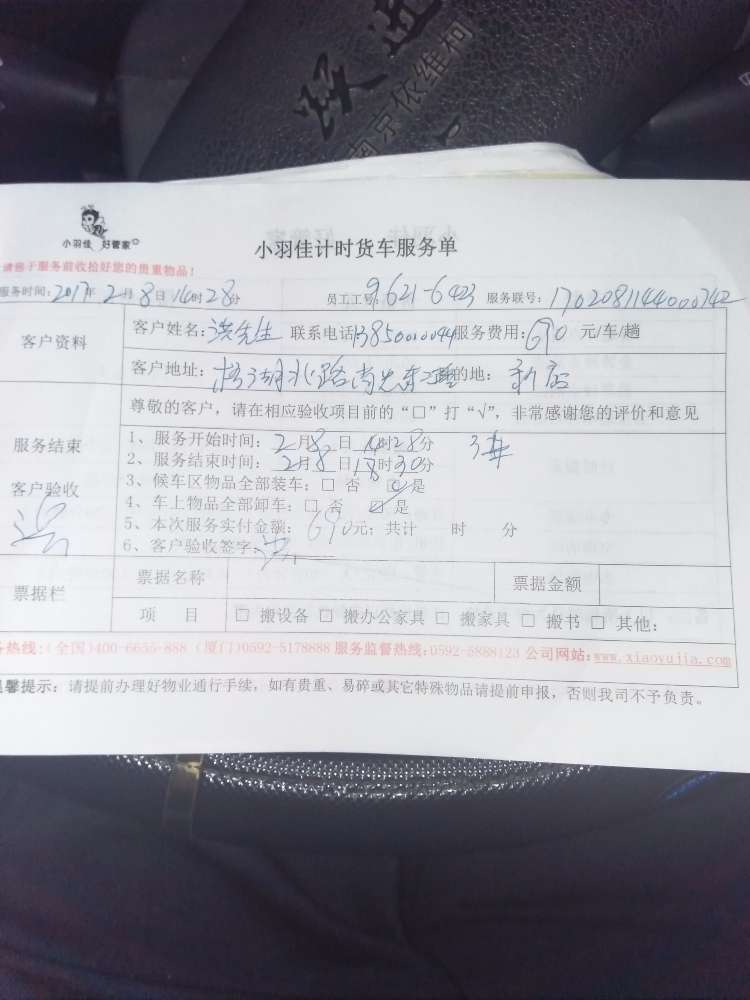 跃进
南京依维柯
小羽佳 好管家
小羽佳计时货车服务单
请您于服务前收拾好您的贵重物品！
服务时间：2017年2月8日14时28分 员工工号：9621-6423 服务联号：1702081144000742
客户资料
客户姓名：洪先生 联系电话1385000044服务费用：690 元/车/趟
客户地址： 湖北路尚 东 的地： 新店
尊敬的客户，请在相应验收项目前的“□”打“√”，非常感谢您的评价和意见
服务结束
客户验收
1、服务开始时间：2月8日14时28分 3车
2、服务结束时间：2月8日18时30分
3、候车区物品全部装车：□ 否 ☑ 是
4、车上物品全部卸车：□ 否 ☑ 是
5、本次服务实付金额：690元；共计 时 分
6、客户验收签字：
票据栏
票据名称 票据金额
项 目 □ 搬设备 □ 搬办公家具 □ 搬家具 □ 搬书 □ 其他：
务热线：(全国)400-6655-888 (厦门)0592-5178888 服务监督热线：0592-5888123 公司网站：www.xiaoyujia.com
温馨提示：请提前办理好物业通行手续，如有贵重、易碎或其它特殊物品请提前申报，否则我司不予负责。